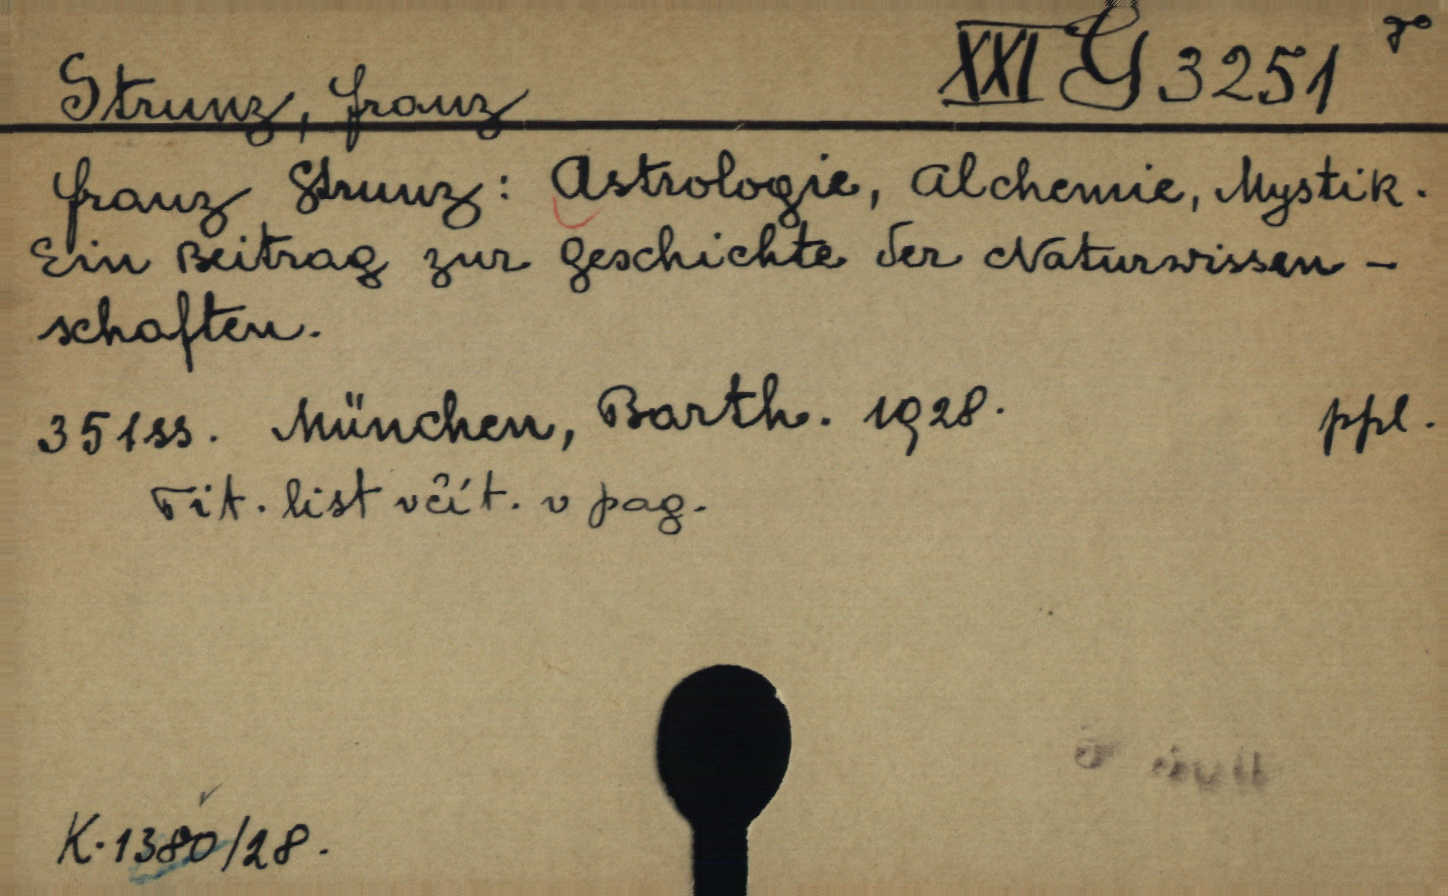 Strunz, Franz
XXI G 3251
Franz Strunz: Astrologie, Alchemie, Mystik.
Ein Beitrag zur Geschichte der Naturwissen-
schaften.
351 ss. München, Barth. 1928. ppl.
Tit. list včít. v pag.
K. 1380/28.